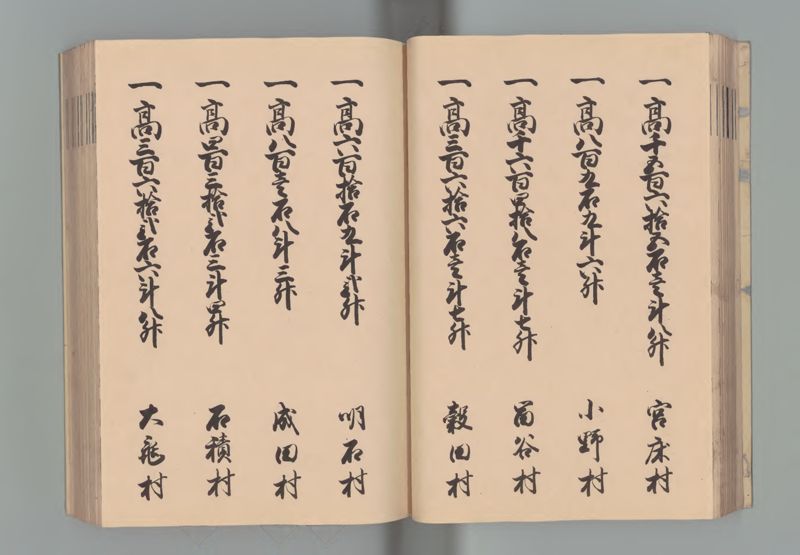 一高千五百六拾五石壱斗八升 宮床村
一高八百九石九斗六升 小野村
一高千六百四拾八石壱斗七升 苗谷村
一高三百六拾六石壱斗七升 穀田村
一高六百拾石九斗弐升 明石村
一高八百壱石八斗三升 成田村
一高四百三拾弐石三斗四升 石積村
一高三百六拾弐石六斗八升 大亀村